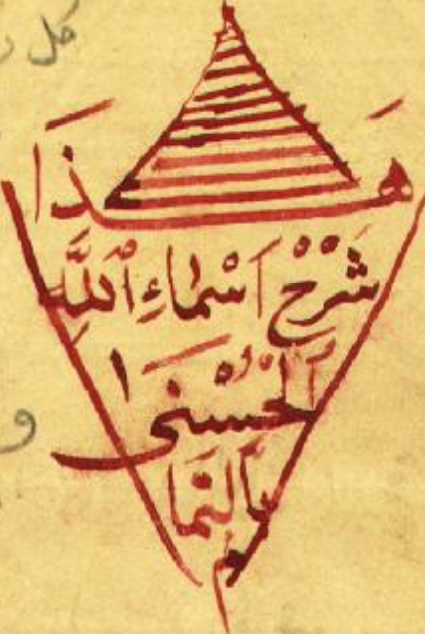 كل
هَذَا
شَرْحُ اَسْمَاءِ اْللَّهِ
اَلْحُسْنٰى
بِالتَّمَا
م
و